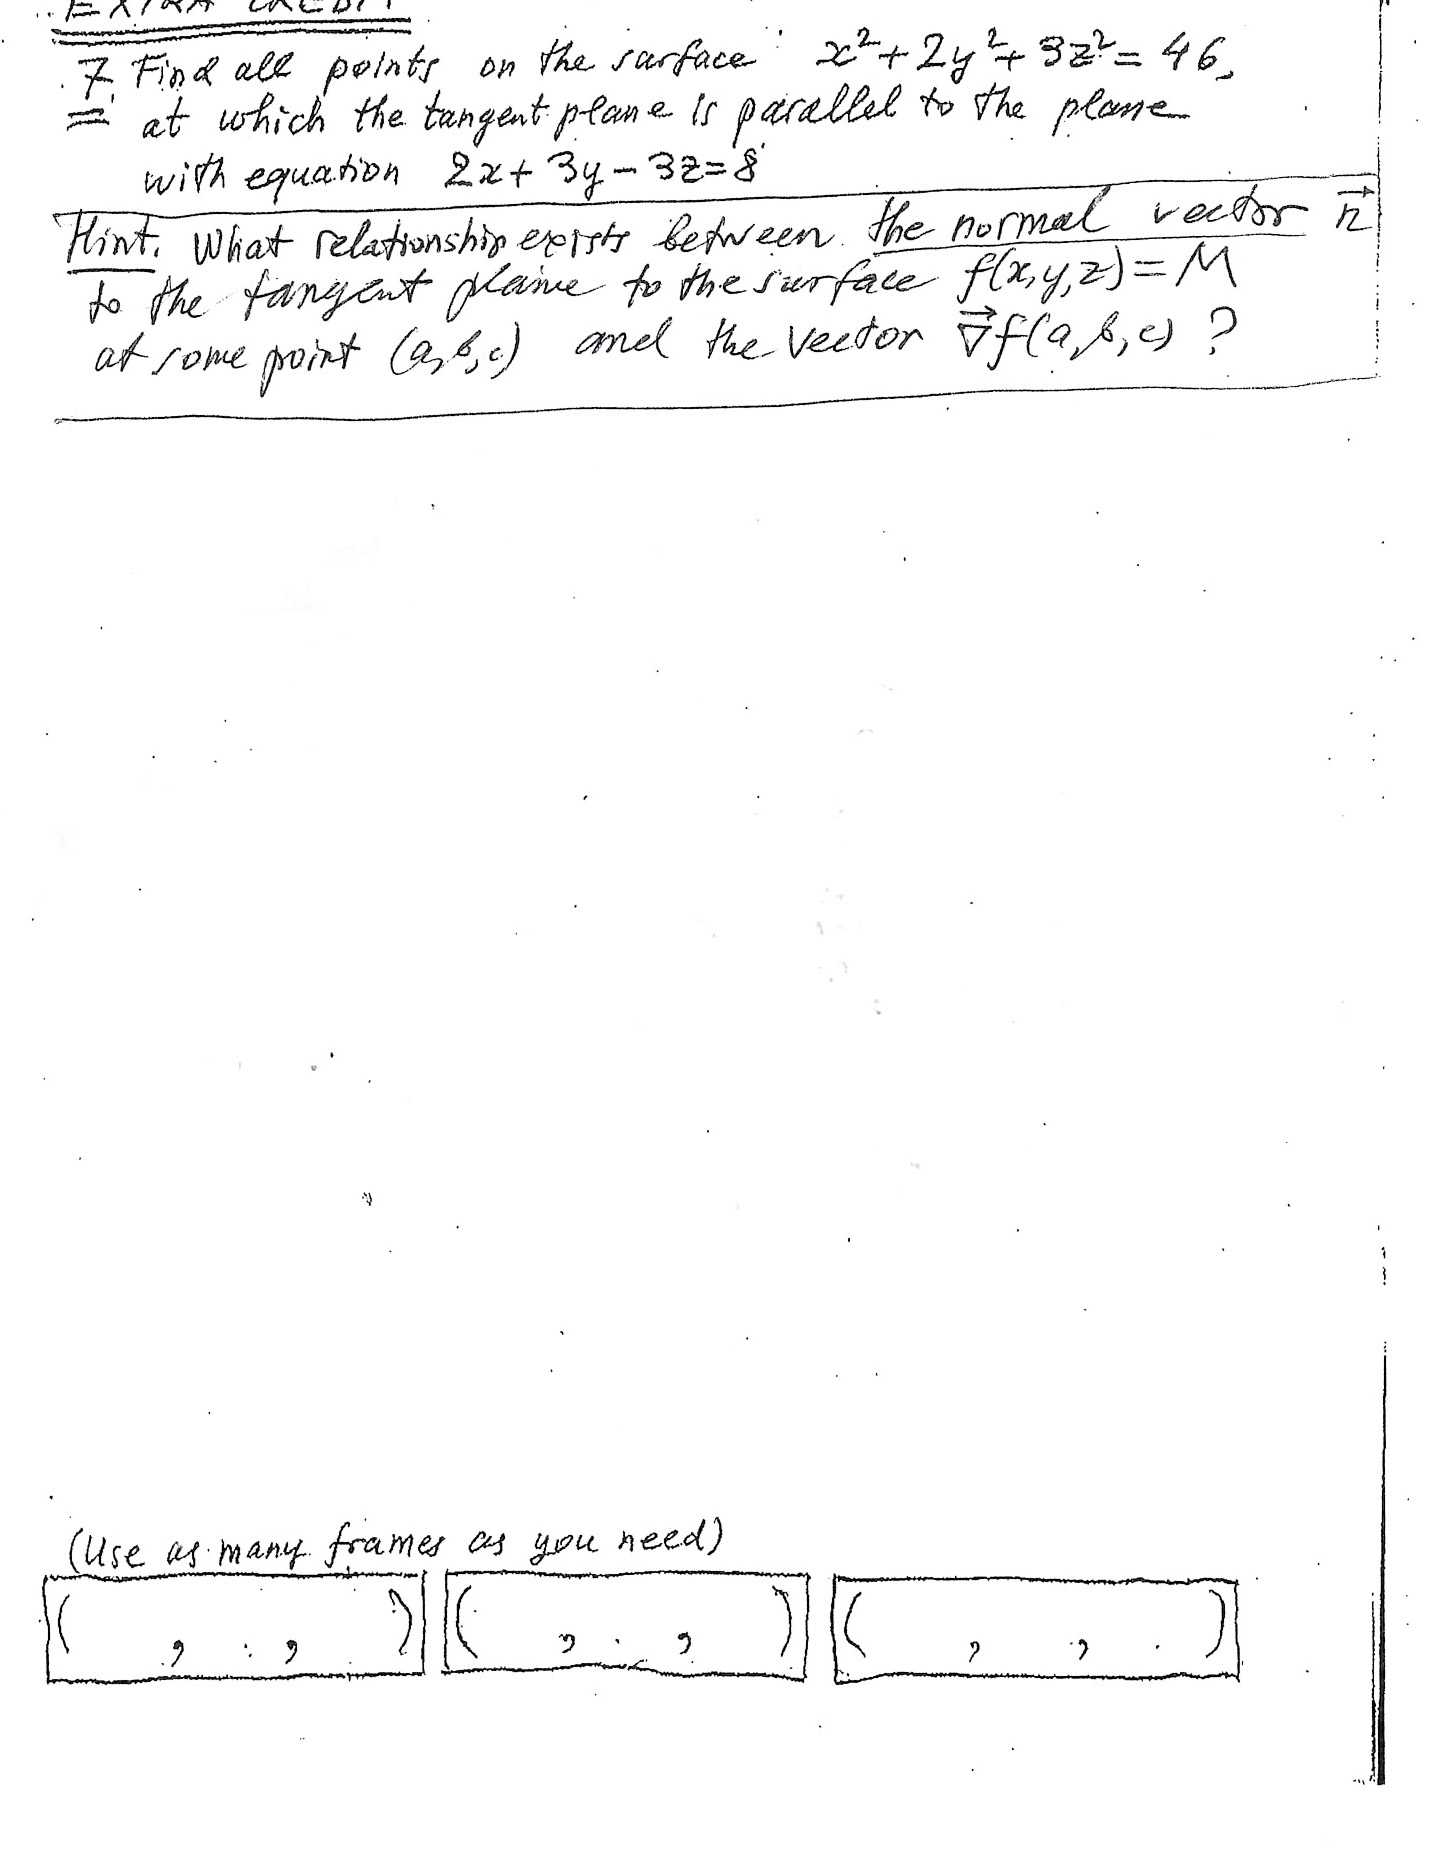 EXTRA CREDIT
7. Find all points on the surface x²+2y²+3z²=46,
at which the tangent plane is parallel to the plane
with equation 2x+3y-3z=8
Hint. What relationship exists between the normal vector n⃗
to the tangent plane to the surface f(x,y,z)=M
at some point (a,b,c) and the vector ∇⃗f(a,b,c)?
(Use as many frames as you need)
( , , ) ( , , ) ( , , )